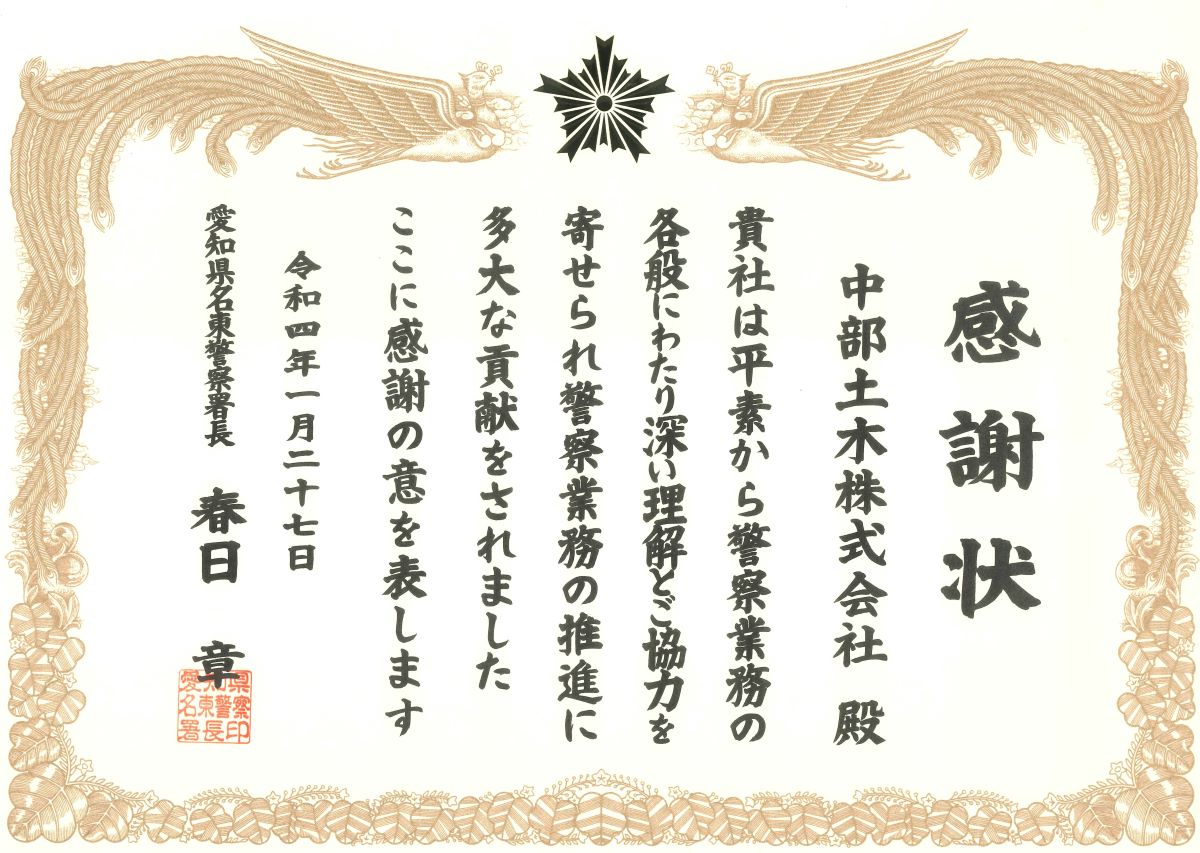 感謝状
中部土木株式会社 殿
貴社は平素から警察業務の
各般にわたり深い理解とご協力を
寄せられ警察業務の推進に
多大な貢献をされました
ここに感謝の意を表します
令和四年一月二十七日
愛知県名東警察署長 春日 章
県察印
知警長
東
愛名署